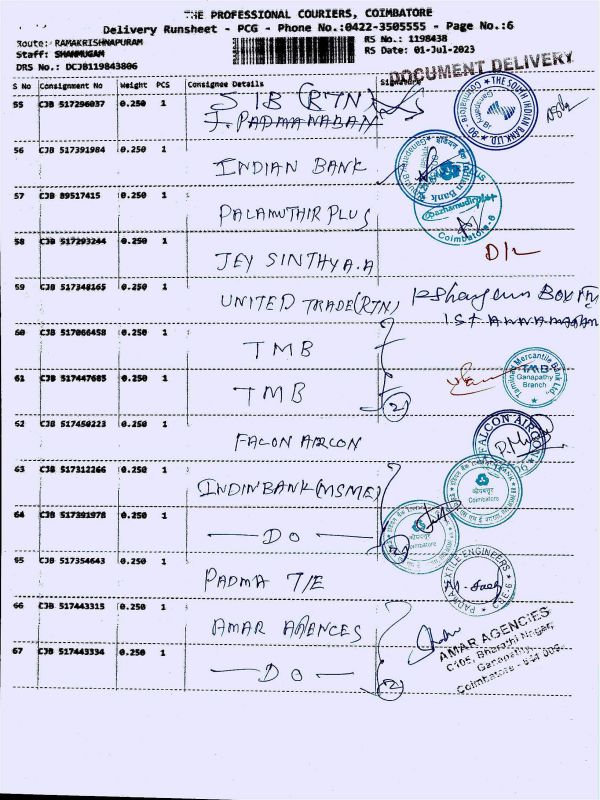 THE PROFESSIONAL COURIERS, COIMBATORE
Delivery Runsheet - PCG - Phone No.:0422-3505555 - Page No.:6
Route: RAMAKRISHNAPURAM
Staff: SHANMUGAM
DRS No.: DCJB119843806
RS No.: 1198438
RS Date: 01-Jul-2023
DOCUMENT DELIVERY
S No Consignment No Weight PCS Consignee Details Signature
55 CJB 517296037 0.250 1 SIB (RTN)
J. PADMANABAN
THE SOUTH INDIAN BANK LTD.
56 CJB 517391984 0.250 1 INDIAN BANK
Indian Bank
57 CJB 89517415 0.250 1 PALAMUTHIR PLUS
Coimbatore-6
58 CJB 517293244 0.250 1 JEY SINTHYA.A
D/L
59 CJB 517348165 0.250 1 UNITED TRADE(RTN)
60 CJB 517066458 0.250 1 TMB
61 CJB 517447685 0.250 1 TMB
2
Tamilnad Mercantile Bank Ltd.
TMB
Ganapathy
Branch
62 CJB 517450223 0.250 1 FALCON AIRCON
FALCON AIRCON
63 CJB 517312266 0.250 1 INDINBANK(MSME)
कोयम्बत्तूर
Coimbatore
64 CJB 517391978 0.250 1 DO
2
Coimbatore
65 CJB 517354643 0.250 1 PADMA T/E
PADMA TEXTILE ENGINEERS
CBE-6
66 CJB 517443315 0.250 1 AMAR AGENCES
67 CJB 517443334 0.250 1 DO
2
AMAR AGENCIES
C105, Bharathi Nagar,
Ganapathy,
Coimbatore - 641 006.